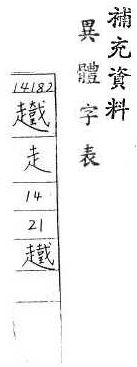 補充資料
異體字表
14182
走
14
21